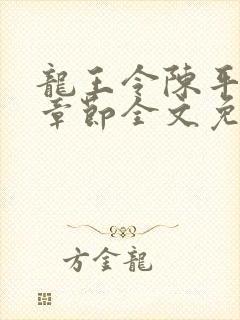 龍王令陳平
章節全文免
方金龍